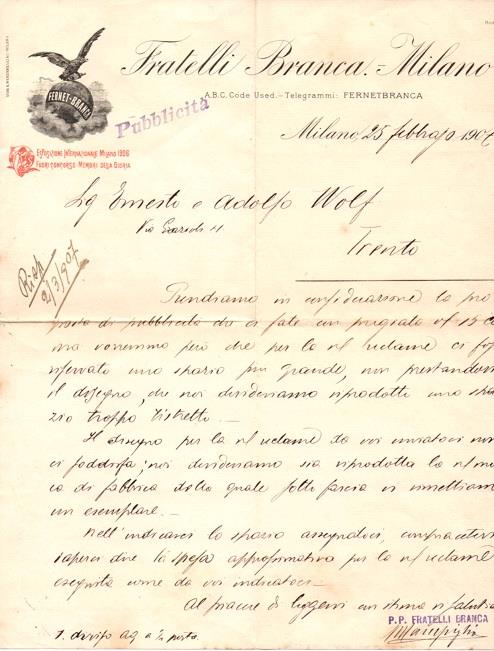 Fratelli Branca.-Milano
A.B.C. Code Used.-Telegrammi: FERNETBRANCA
FERNET-BRANCA
Pubblicità
Esposizione Internazionale Milano 1906
Fuori Concorso-Membri della Giuria
Milano, 25 febbrajo 1907
Sg Ernesto e Adolfo Wolf
Via
Trento
Risp
2/3/907
Prendiamo in considerazione la pro
posta di pubblicità che ci fate con pregiata vs/ 15 co
ma vorremmo però che per la n/ reclame ci fos
riservato uno spazio più grande, non prestandovi
il disegno, che noi desideriamo riprodotto uno spa
zio troppo ristretto.-
Il disegno per la n/ reclame da voi inviatoci non
ci soddisfa; noi desideriamo sia riprodotta la n/ mar
ca di fabbrica della quale sotto fascia vi rimettiamo
un esemplare.-
Nell'indicarci lo spazio assegnatoci,
saperci dire la spesa approssimativa per la n/ reclame
eseguita come da voi indicatoci-
Al piacere di leggervi con stima vi salutia
P.P. FRATELLI BRANCA